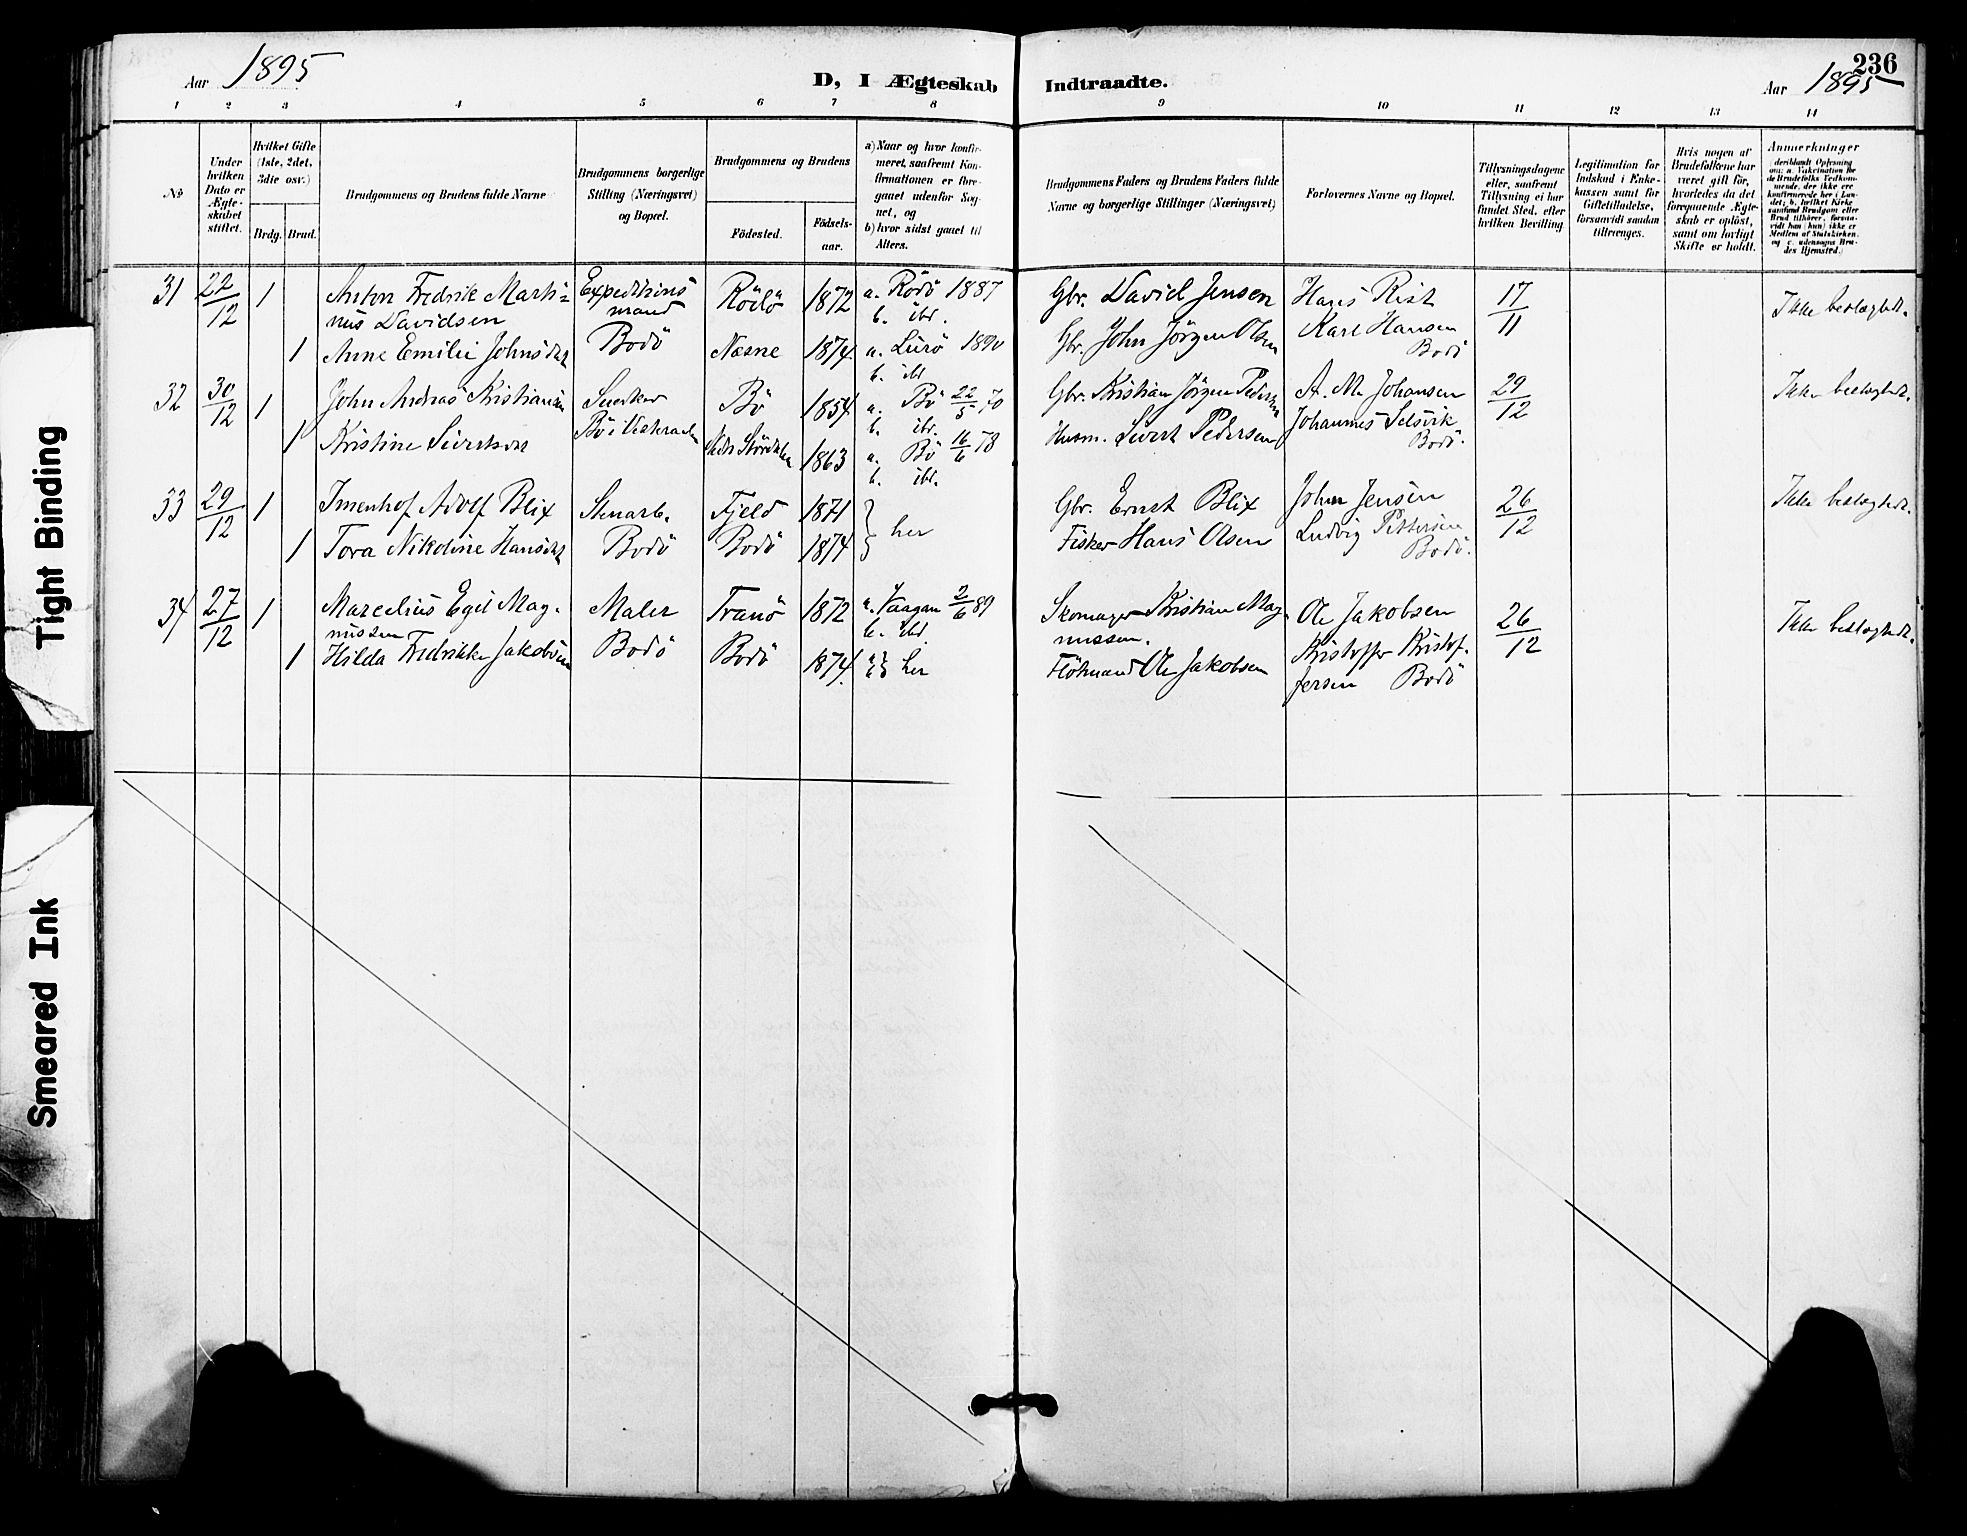 Tight Binding
Smeared Ink
Aar 1895
D, I Ægteskab Indtraadte.
236
Aar 1895
1 2 3 4 5 6 7 8 9 10 11 12 13 14
No
Under hvilken Dato er Ægteskabet stiftet.
Hvilket Gifte (1ste, 2det, 3die osv.)
Brdg. Brud.
Brudgommens og Brudens fulde Navne
Brudgommens borgerlige Stilling (Næringsvei) og Bopæl.
Brudgommens og Brudens
Födested.
Födselsaar.
a) Naar og hvor konfirmeret, saafremt Konfirmationen er foregaaet udenfor Sognet, og
b) hvor sidst gaaet til Alters.
Brudgommens Faders og Brudens Faders fulde Navne og borgerlige Stillinger (Næringsvei)
Forlovernes Navne og Bopæl.
Tillysningsdagene eller, saafremt Tillysning ei har fundet Sted, efter hvilken Bevilling
Legitimation for Indskud i Enkekassen samt for Giftetilladelse, forsaavidt saadan tiltrænges.
Hvis nogen af Brudefolkene har været gift før, hvorledes da det foregaaende Ægteskab er opløst, samt om lovligt Skifte er holdt.
Anmerkninger
31 22/12 1 Anton Fredrik Marti-
nus Davidsen
Expeditions
mand
Bodö
Rödö 1872 a. Rödö 1887
b. ibd.
Gbr. David Jensen
Hans Rist
Karl Hansen
Bodö
17/11
Ikke beslægtet.
1 Anne Emilie Johnsdtr
Næsne 1874 a. Lurö 1890
b. ibd
Gbr. John Jörgen Olsen
32 30/12 1 John Andreas Kristiansen
Snedker
Bö 1854 a. Bö 22/5 70
b. ibd.
Gbr. Kristian Jörgen Pedersen
A. M. Johansen
Johannes Selsvik
Bodö.
29/12
Ikke beslægtet.
1 Kristine Sivertsen
1863 a. Bö 16/6 78
b. ibd.
Husm. Sivert Pedersen
33 29/12 1 Imenhof Adolf Blix
Stenarb.
Bodö
Fjeld 1871
her
Gbr. Ernst Blix
John Jensen
Ludvig Pettersen
Bodö.
26/12
Ikke beslægtet.
1 Tora Nikoline Hansdtr
Bodö 1874
Fisker Hans Olsen
34 27/12 1 Marcelius Egil Mag-
nussen
Maler
Bodö
Tranö 1872 a. Vaagan 2/6 89
b. ibd.
Skomager Kristian Mag-
nussen.
Ole Jakobsen
Kristoffer Kristof-
fersen Bodö
26/12
Ikke beslægtet.
1 Hilda Fredrikke Jakobsen
Bodö 1874. her
Flötmand Ole Jakobsen